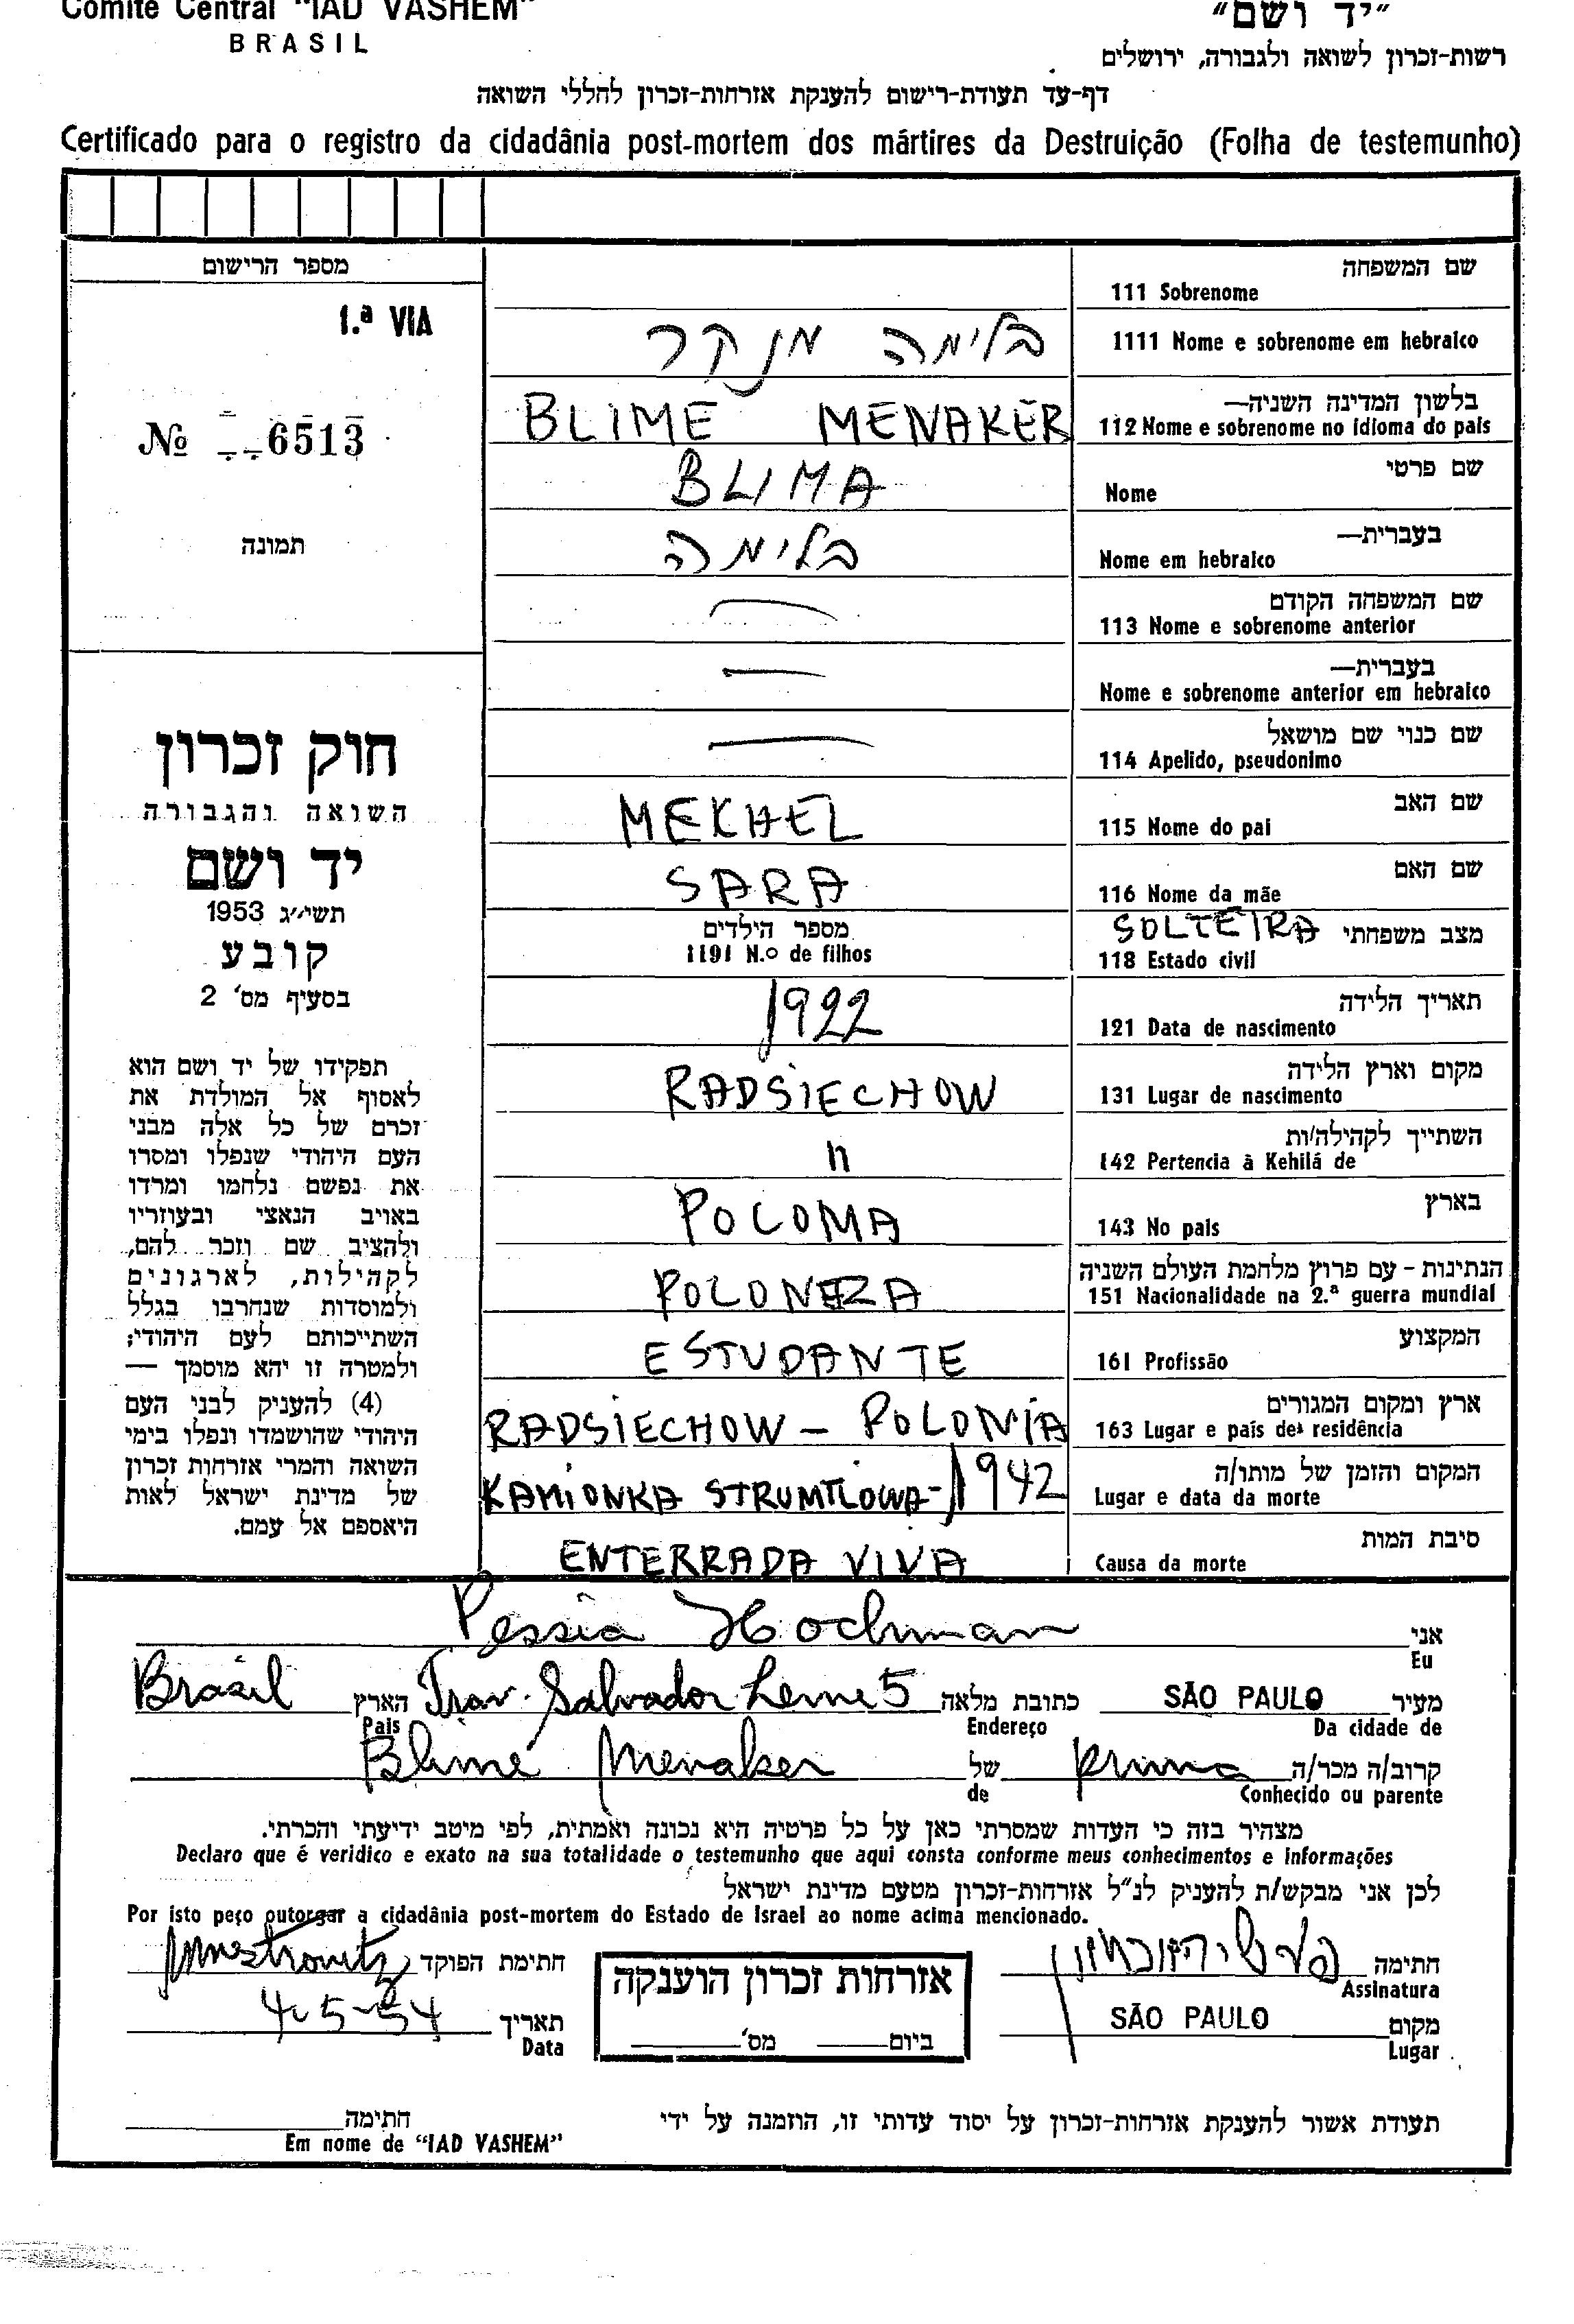 Comité Central "IAD VASHEM"
BRASIL
"יד ושם"
רשות-זכרון לשואה ולגבורה, ירושלים
דף-עד תעודת-רישום להענקת אזרחות-זכרון לחללי השואה
Certificado para o registro da cidadânia post-mortem dos mártires da Destruição (Folha de testemunho)
מספר הרישום
1.ª VIA
№ 6513
תמונה
חוק זכרון
השואה והגבורה
יד ושם
תשי״ג 1953
קובע
בסעיף מס' 2
תפקידו של יד ושם הוא
לאסוף אל המולדת את
זכרם של כל אלה מבני
העם היהודי שנפלו ומסרו
את נפשם נלחמו ומרדו
באויב הנאצי ובעוזריו
ולהציב שם וזכר להם,
לקהילות, לארגונים
ולמוסדות שנחרבו בגלל
השתייכותם לעם היהודי;
ולמטרה זו יהא מוסמך —
(4) להעניק לבני העם
היהודי שהושמדו ונפלו בימי
השואה והמרי אזרחות זכרון
של מדינת ישראל לאות
היאספם אל עמם.
שם המשפחה
111 Sobrenome
בלימה מנקר
1111 Nome e sobrenome em hebraico
בלשון המדינה השניה—
BLIME MENAKER
112 Nome e sobrenome no idioma do pais
שם פרטי
BLIMA
Nome
בעברית—
בלימה
Nome em hebraico
שם המשפחה הקודם
113 Nome e sobrenome anterior
בעברית—
Nome e sobrenome anterior em hebraico
שם כנוי שם מושאל
114 Apelido, pseudonimo
שם האב
MEKHEL
115 Nome do pai
שם האם
SARA
116 Nome da mãe
מספר הילדים
1191 N.º de filhos
מצב משפחתי SOLTEIRA
118 Estado civil
תאריך הלידה
1922
121 Data de nascimento
מקום וארץ הלידה
RADSIECHOW
131 Lugar de nascimento
השתייך לקהילה/ות
"
142 Pertencia à Kehilá de
בארץ
POLOMA
143 No pais
הנתינות - עם פרוץ מלחמת העולם השניה
POLONEZA
151 Nacionalidade na 2.ª guerra mundial
המקצוע
ESTUDANTE
161 Profissão
ארץ ומקום המגורים
RADSIECHOW - POLONIA
163 Lugar e país de residência
המקום והזמן של מותו/ה
KAMIONKA STRUMTLOWA - 1942
Lugar e data da morte
סיבת המות
ENTERRADA VIVA
Causa da morte
אני Pessia Hochman
Eu
מעיר SÃO PAULO כתובת מלאה Trav. Salvador Leme 5 הארץ Brasil
Da cidade de Endereço Pais
קרוב/ה מכר/ה prima של Blime Menaker
Conhecido ou parente de
מצהיר בזה כי העדות שמסרתי כאן על כל פרטיה היא נכונה ואמתית, לפי מיטב ידיעתי והכרתי.
Declaro que é veridico e exato na sua totalidade o testemunho que aqui consta conforme meus conhecimentos e informações
לכן אני מבקש/ת להעניק לנ"ל אזרחות-זכרון מטעם מדינת ישראל
Por isto peço outorgar a cidadânia post-mortem do Estado de Israel ao nome acima mencionado.
חתימה פעסי הוכמון
Assinatura
חתימת הפוקד
מקום SÃO PAULO
Lugar
תאריך 4-5-54
Data
אזרחות זכרון הוענקה
ביום מס'
תעודת אשור להענקת אזרחות-זכרון על יסוד עדותי זו, הוזמנה על ידי
חתימה
Em nome de "IAD VASHEM"